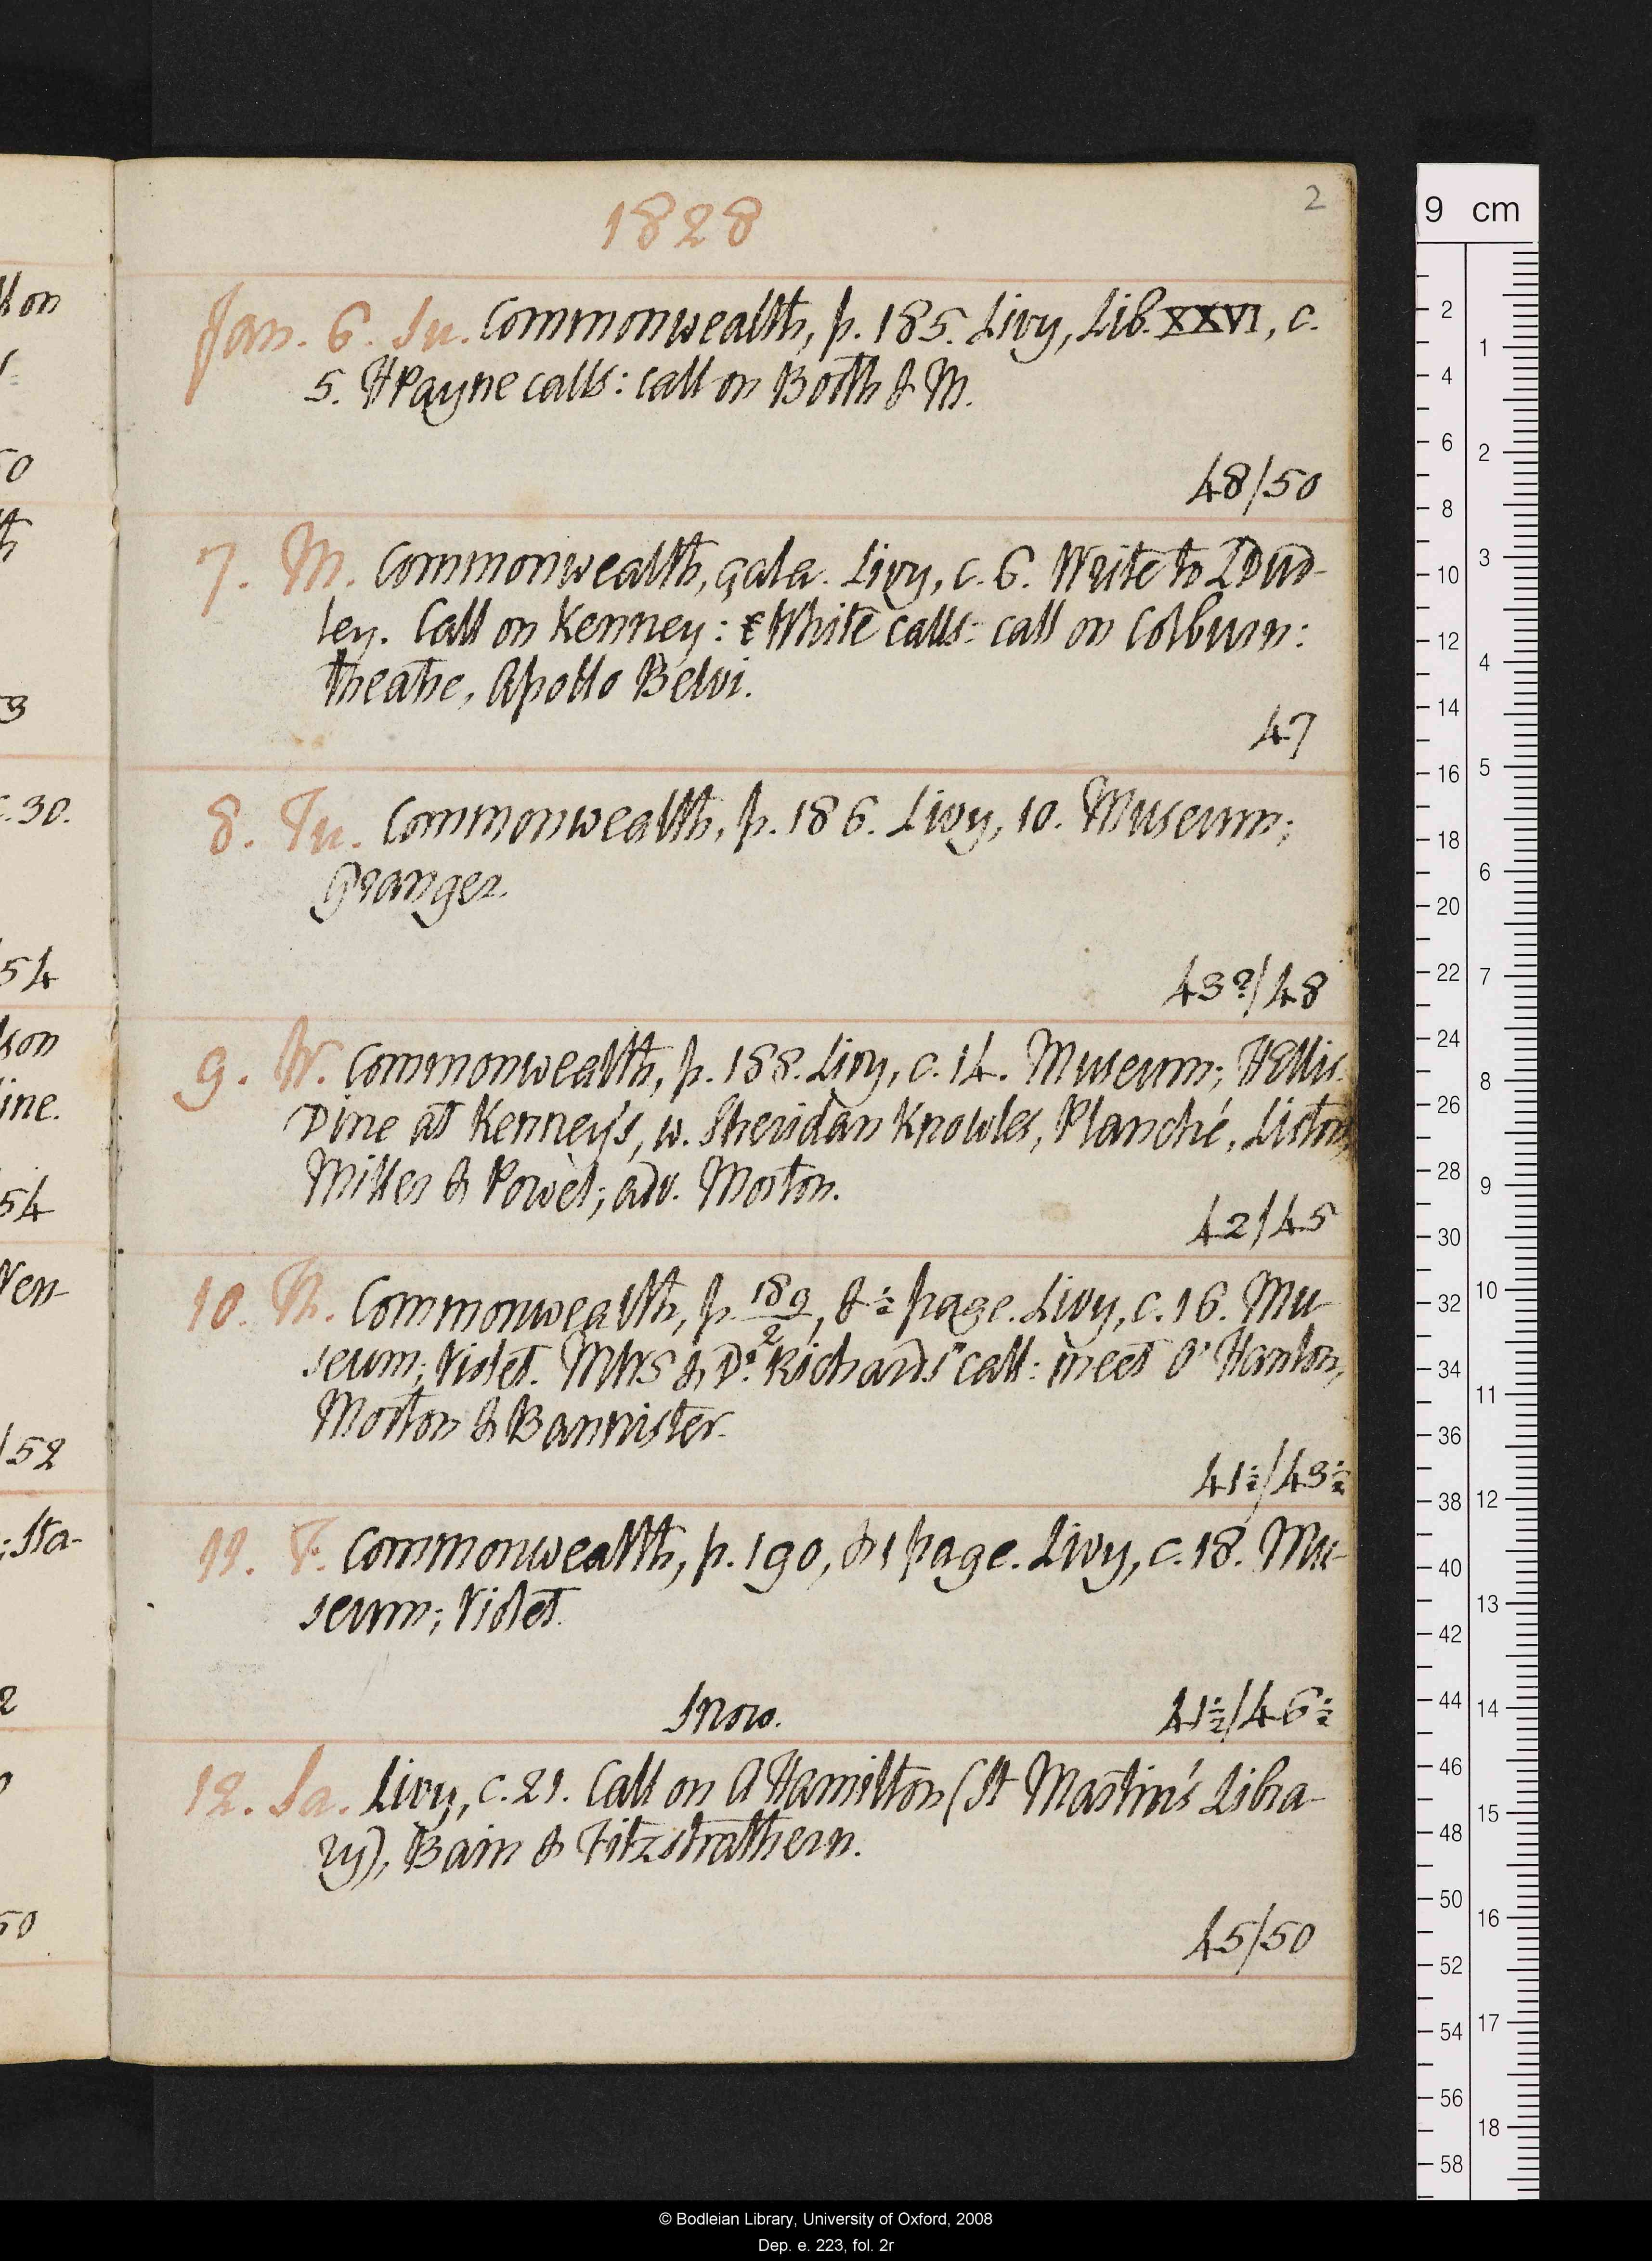 1828
2
Jan. 6. Su. Commonwealth, p. 185. Livy, Lib. XXVI, c.
5. HPayne calls: call on Booth & M.
48/50
7. M. Commonwealth, gala. Livy, c. 6. Write to LDud-
ley. Call on Kenney: White calls: call on Colburn:
theatre, Apollo Belvi.
47
8. Tu. Commonwealth, p. 186. Livy, 10. Museum;
Granger.
43?/48
9. W. Commonwealth, p. 188. Livy, c. 14. Museum; HEllis.
Dine at Kenney's, w. Sheridan Knowles, Planché, Liston,
Miller & Powel; adv. Morton.
42/45
10. Th. Commonwealth, p. 189/2, & ½ page. Livy, c. 16. Mu-
seum; Violet. MWS & Dr. Richards call: meet O'Hanlon,
Morton & Bannister.
41½/43½
11. F. Commonwealth, p. 190, & 1 page. Livy, c. 18. Mu-
seum; Violet.
Snow. 41½/46½
12. Sa. Livy, c. 21. Call on AHamilton (St Martin's Libra-
ry), Bain & Fitzstrathern.
45/50
on
50
3
c. 30.
54
son
ine.
54
Ven-
/52
; Sta-
2
50
9 cm
2
4
6
8
10
12
14
16
18
20
22
24
26
28
30
32
34
36
38
40
42
44
46
48
50
52
54
56
58
1
2
3
4
5
6
7
8
9
10
11
12
13
14
15
16
17
18
© Bodleian Library, University of Oxford, 2008
Dep. e. 223, fol. 2r